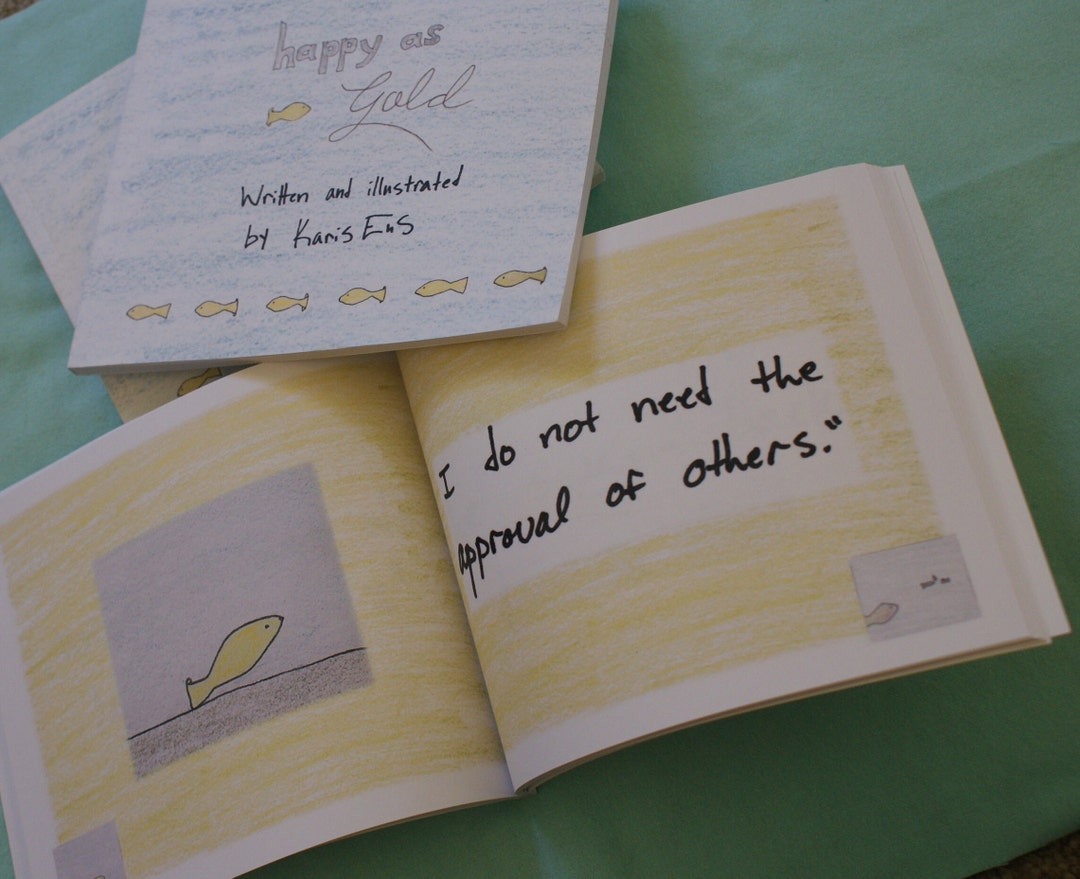 happy as
Gold
Written and illustrated
by Karis Ens
I do not need the
approval of others."